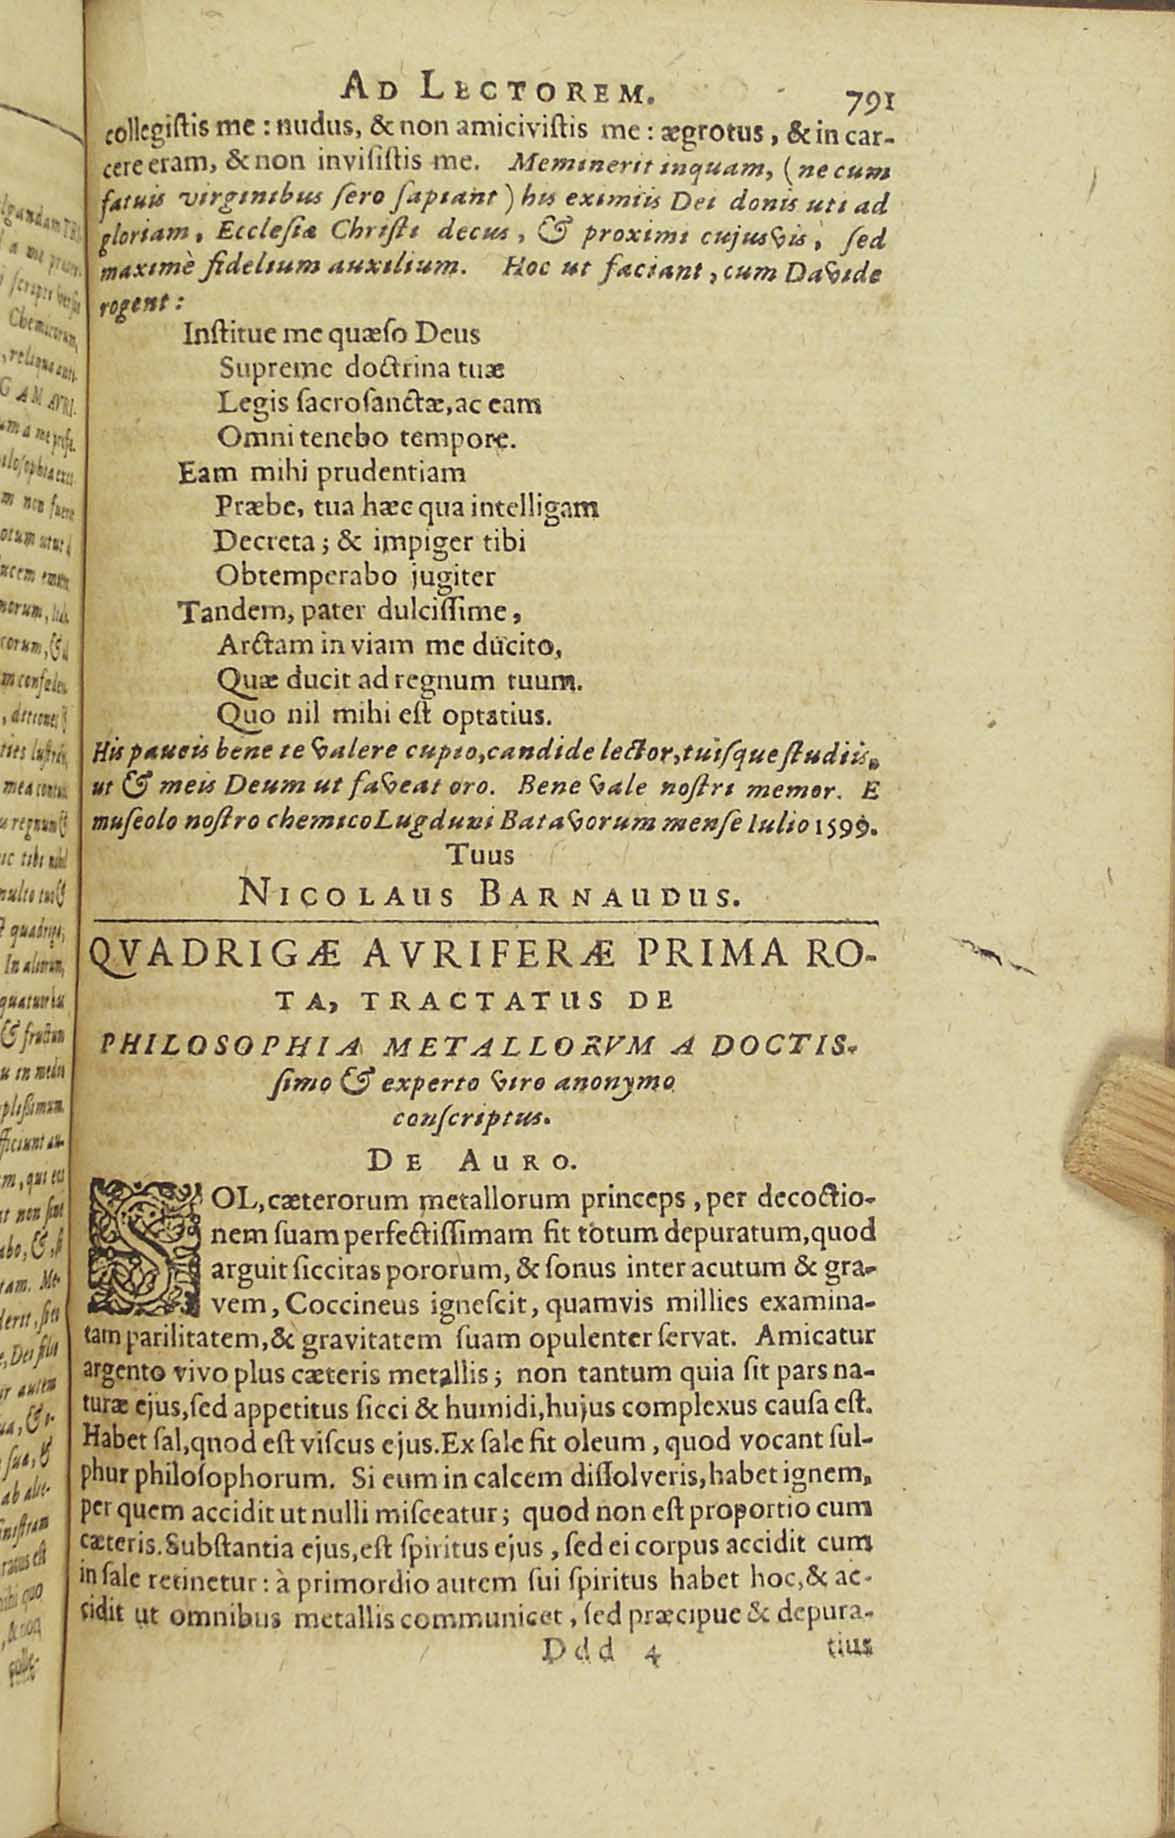 AD LECTOREM. 791
collegistis me: nudus, & non amicivistis me: ægrotus, & in car-
cere eram, & non invisistis me. Meminerit inquam, (ne cum
fatuis virginibus sero sapiant) his eximiis Dei donis uti ad
gloriam, Ecclesiæ Christi decus, & proximi cujusvis, sed
maximè fidelium auxilium. Hoc ut faciant, cum Davide
rogent:
Institue me quæso Deus
Supreme doctrina tuæ
Legis sacrosanctæ, ac eam
Omni tenebo tempore.
Eam mihi prudentiam
Præbe, tua hæc qua intelligam
Decreta; & impiger tibi
Obtemperabo jugiter
Tandem, pater dulcissime,
Arctam in viam me ducito,
Quæ ducit ad regnum tuum.
Quo nil mihi est optatius.
His paucis bene te valere cupio, candide lector, tuisque studiis,
ut & meis Deum ut faveat oro. Bene vale nostri memor. E
museolo nostro chemico Lugduni Batavorum mense Iulio 1599.
Tuus
NICOLAUS BARNAUDUS.
QVADRIGÆ AVRIFERÆ PRIMA RO-
TA, TRACTATUS DE
PHILOSOPHIA METALLORVM A DOCTIS-
simo & experto viro anonymo
conscriptus.
DE AURO.
SOL, cæterorum metallorum princeps, per decoctio-
nem suam perfectissimam fit totum depuratum, quod
arguit siccitas pororum, & sonus inter acutum & gra-
vem, Coccineus ignescit, quamvis millies examina-
tam parilitatem, & gravitatem suam opulenter servat. Amicatur
argento vivo plus cæteris metallis; non tantum quia sit pars na-
turæ ejus, sed appetitus sicci & humidi, hujus complexus causa est.
Habet sal, quod est viscus ejus. Ex sale fit oleum, quod vocant sul-
phur philosophorum. Si eum in calcem dissolveris, habet ignem,
per quem accidit ut nulli misceatur; quod non est proportio cum
cæteris. Substantia ejus, est spiritus ejus, sed ei corpus accidit cum
in sale retinetur: à primordio autem sui spiritus habet hoc, & ac-
cidit ut omnibus metallis communicet, sed præcipue & depura-
Ddd 4 tius